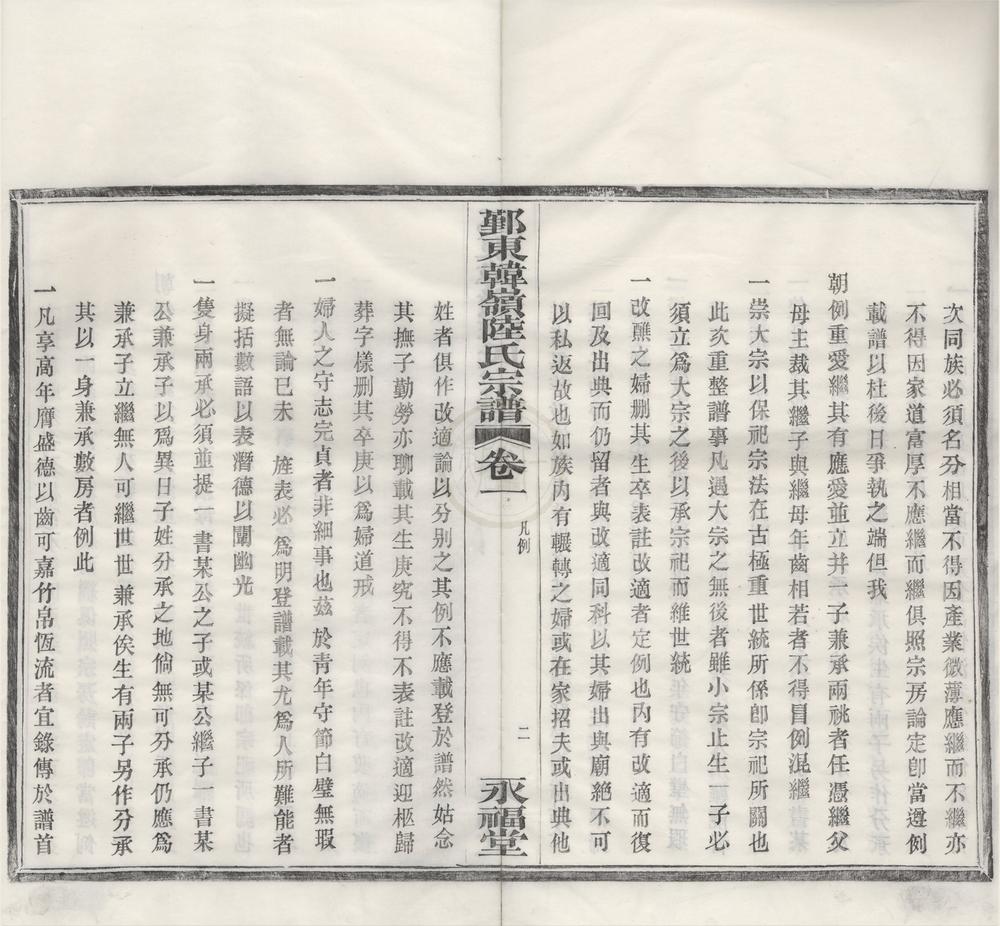 次同族必須名分相當不得因產業微薄應繼而不繼亦
不得因家道富厚不應繼而繼俱照宗房論定卽當遵例
載譜以杜後日爭執之端但我
朝例重愛繼其有應愛並立并一子兼承兩祧者任憑繼父
母主裁其繼子與繼母年齒相若者不得冒例混繼
一崇大宗以保祀宗法在古極重世統所係卽宗祀所關也
此次重整譜事凡遇大宗之無後者雖小宗止生一子必
須立爲大宗之後以承宗祀而維世統
一改醮之婦刪其生卒表註改適者定例也內有改適而復
回及出典而仍留者與改適同科以其婦出與廟絕不可
以私返故也如族內有輾轉之婦或在家招夫或出典他
鄞東韓嶺陸氏宗譜 卷一 凡例 二 永福堂
姓者俱作改適論以分別之其例不應載登於譜然姑念
其撫子勤勞亦聊載其生庚究不得不表註改適迎柩歸
葬字樣刪其卒庚以爲婦道戒
一婦人之守志完貞者非細事也茲於青年守節白璧無瑕
者無論已未 旌表必爲明登譜載其尤爲人所難能者
擬括數語以表潛德以闡幽光
一隻身兩承必須並提一書某公之子或某公繼子一書某
公兼承子以爲異日子姓分承之地倘無可分承仍應爲
兼承子立繼無人可繼世世兼承俟生有兩子另作分承
其以一身兼承數房者例此
一凡享高年膺盛德以齒可嘉竹帛恆流者宜錄傳於譜首